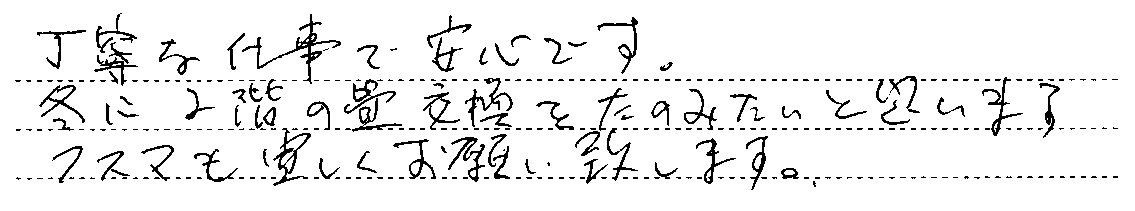 丁寧な仕事で安心です。
冬に2階の畳交換をたのみたいと思います
フスマも宜しくお願い致します。